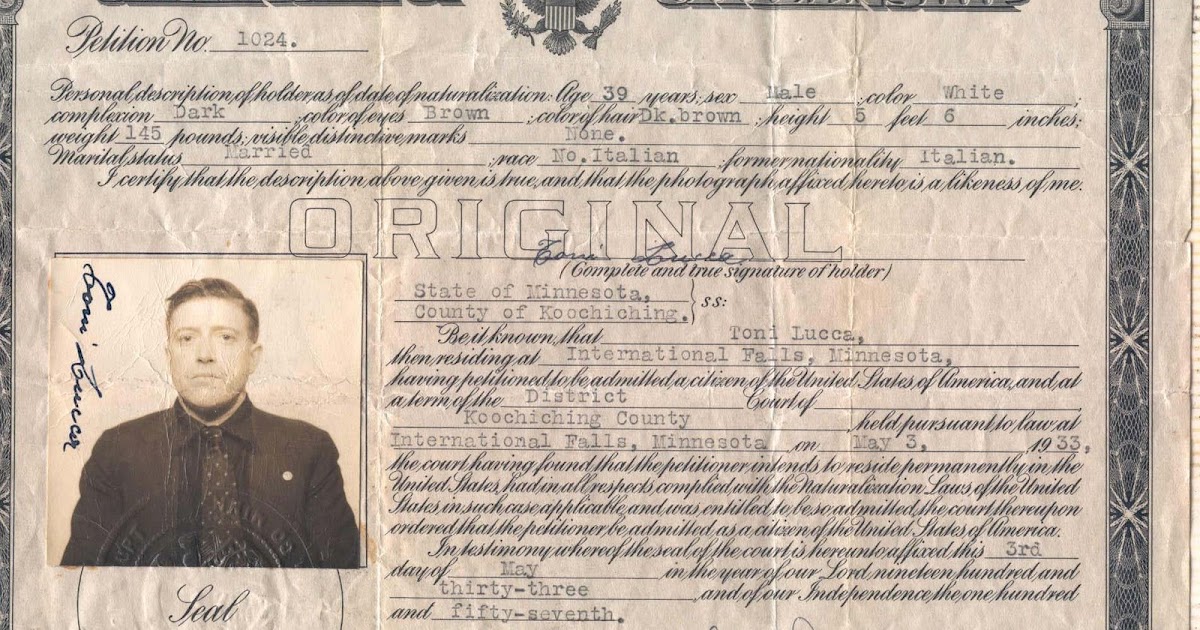 Petition No. 1024.
Personal description of holder as of date of naturalization: Age 39 years; sex Male ; color White ;
complexion Dark ; color of eyes Brown ; color of hair Dk.brown ; height 5 feet 6 inches;
weight 145 pounds; visible distinctive marks None.
Marital status Married ; race No.Italian ; former nationality Italian.
I certify that the description above given is true, and that the photograph affixed hereto is a likeness of me.
ORIGINAL
Toni Lucca
(Complete and true signature of holder)
Toni Lucca
State of Minnesota,
County of Koochiching. } ss:
Be it known, that Toni Lucca,
then residing at International Falls, Minnesota,
having petitioned to be admitted a citizen of the United States of America, and at
a term of the District Court of
Koochiching County , held pursuant to law at
International Falls, Minnesota , on May 3, 1933,
the court having found that the petitioner intends to reside permanently in the
United States, had in all respects complied with the Naturalization Laws of the United
States in such case applicable, and was entitled to be so admitted, the court thereupon
ordered that the petitioner be admitted as a citizen of the United States of America.
In testimony whereof the seal of the court is hereunto affixed this 3rd
day of May in the year of our Lord nineteen hundred and
thirty-three , and of our Independence the one hundred
and fifty-seventh.
Seal